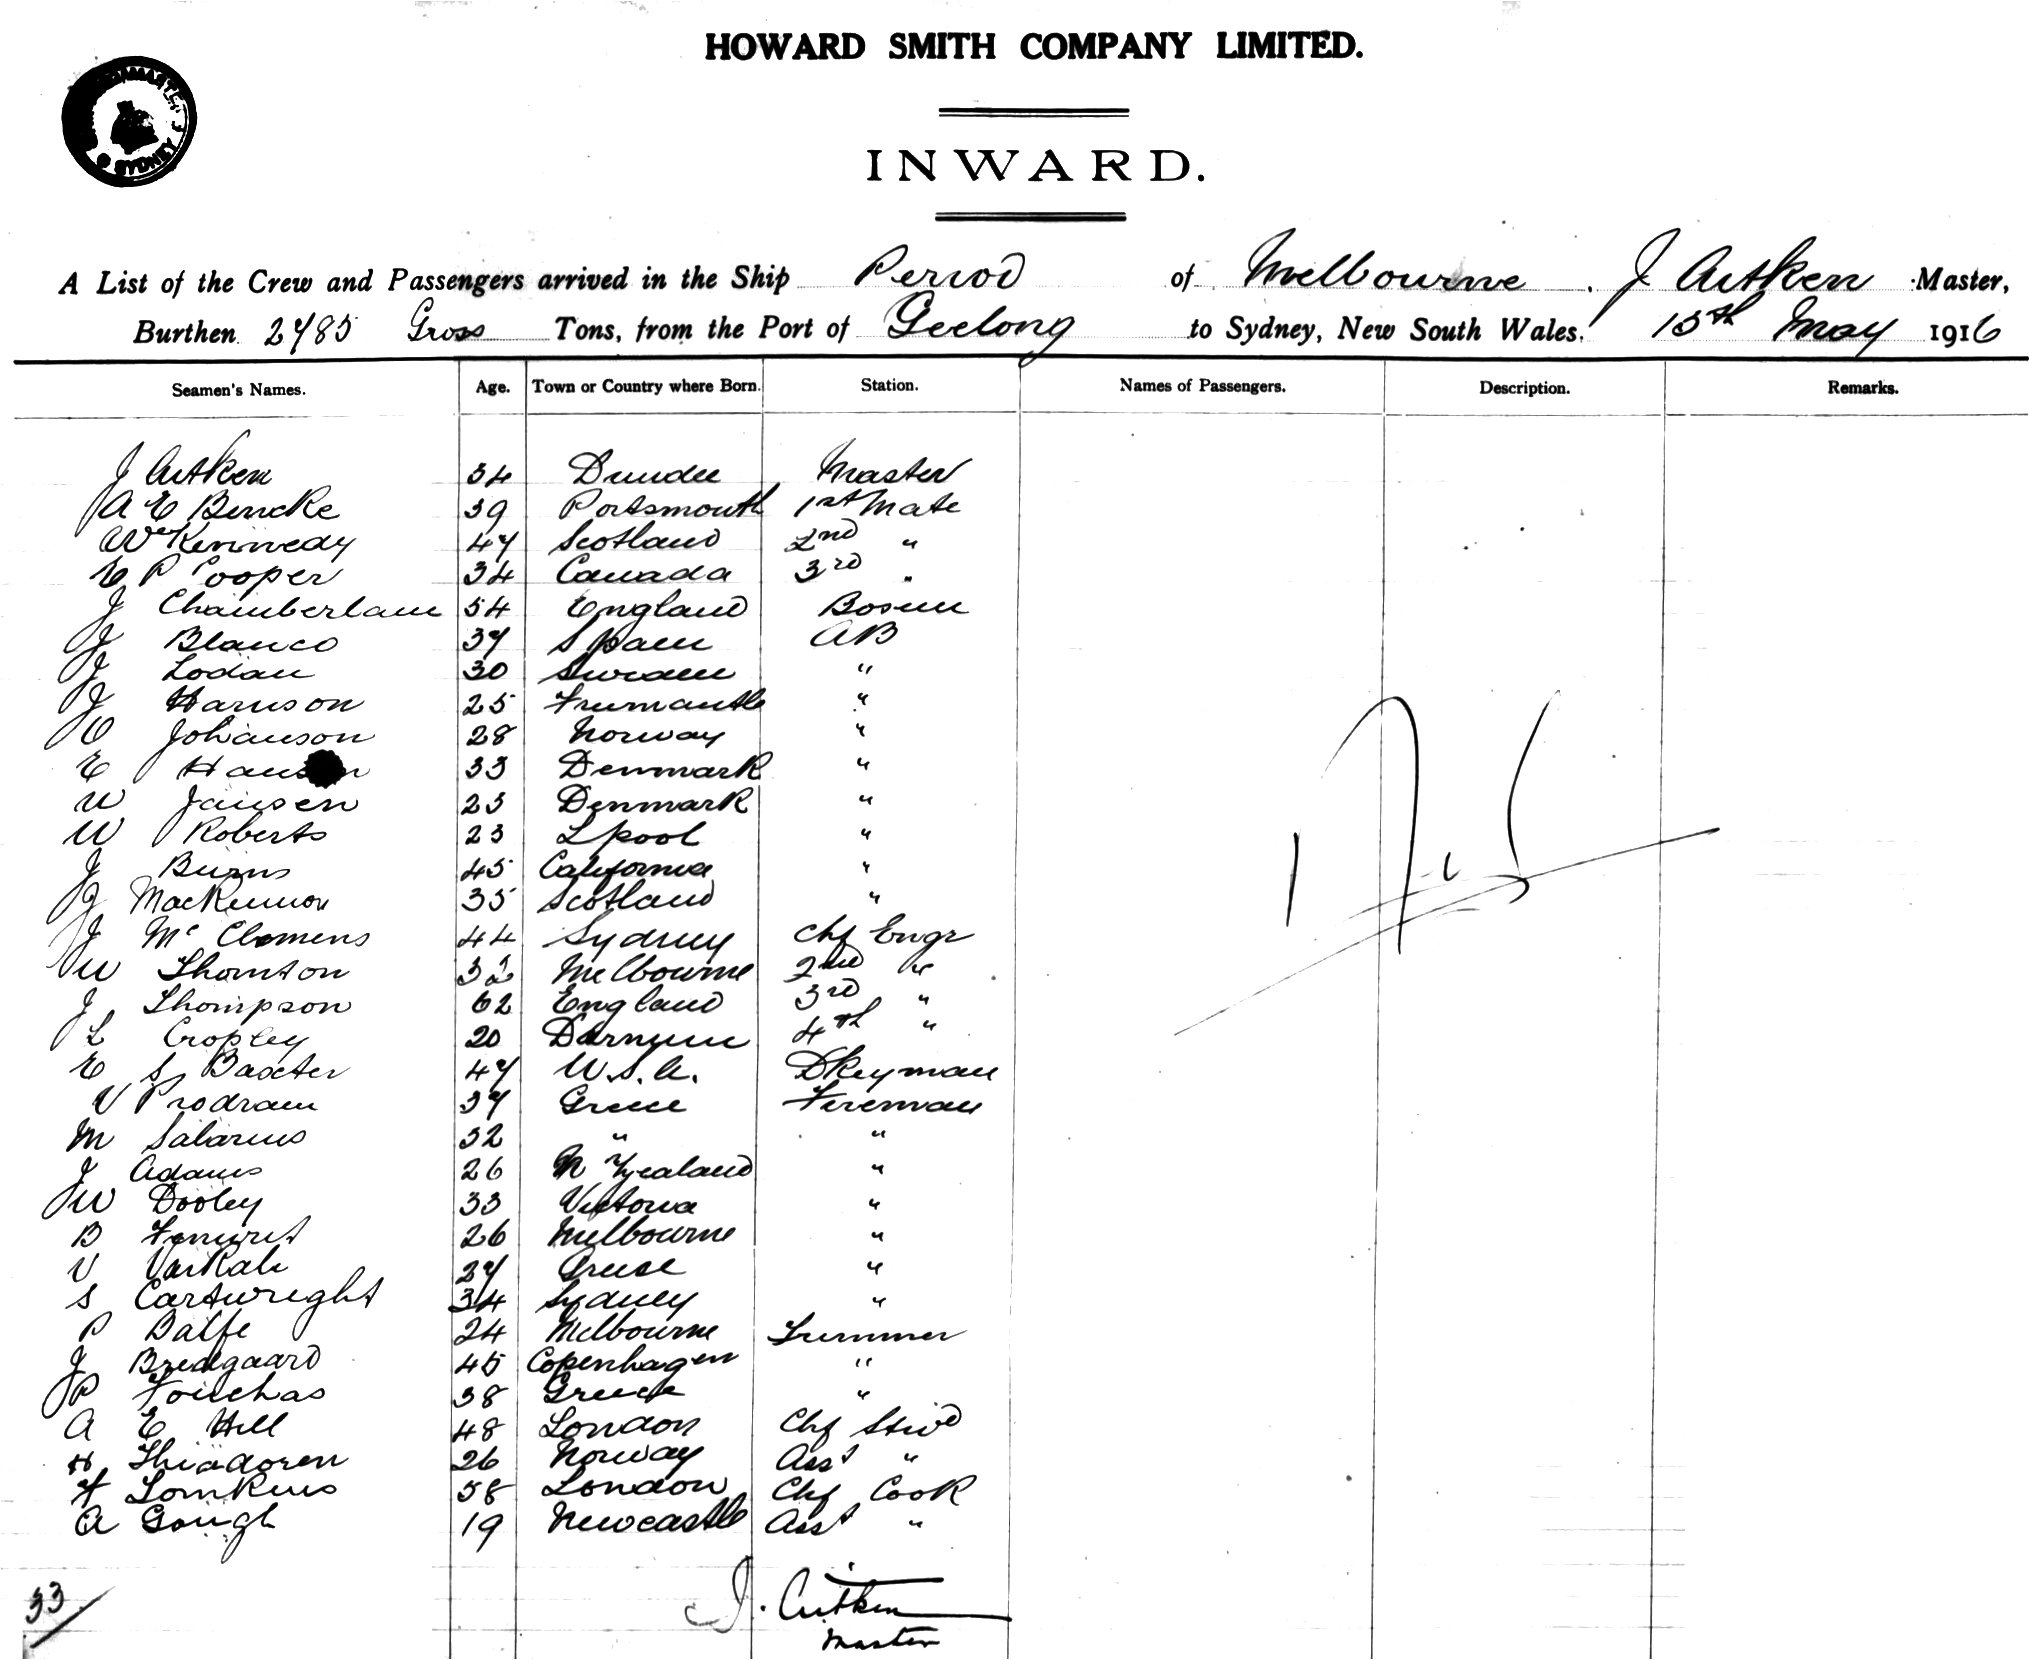 HOWARD SMITH COMPANY LIMITED.
SYDNEY
INWARD.
A List of the Crew and Passengers arrived in the Ship Period of Melbourne. J Aitken Master,
Burthen 2785 Gross Tons, from the Port of Geelong to Sydney, New South Wales. 15th May 1916
Seamen's Names. Age. Town or Country where Born. Station. Names of Passengers. Description. Remarks.
J Aitken 34 Dundee Master
A E Bencke 39 Portsmouth 1st Mate
Kennedy 47 Scotland 2nd "
E P Cooper 34 Canada 3rd "
J Chamberlain 54 England Bosun
J Blanco 37 Spain AB
J Lodan 30 Sweden "
J Harrison 25 Fremantle "
O Johanson 28 Norway "
E Hansen 33 Denmark "
W Jansen 23 Denmark "
W Roberts 23 Lpool "
J Burns 45 California "
J MacKinnon 35 Scotland "
J Mc Clemens 44 Sydney Chf Engr
W Thornton 32 Melbourne 2nd "
J Thompson 62 England 3rd "
L Cropley 20 Darnum 4th "
E S Baxter 47 U.S.A. Dkeyman
V Prodram 37 Greece Fireman
M Salarius 32 " "
J Adams 26 N Zealand "
W Dooley 33 Victoria "
B 26 Melbourne "
V Varkali 27 Greese "
S Cartwright 34 Sydney "
P Balfe 24 Melbourne Trimmer
J Bredgaard 45 Copenhagen "
P Fouchas 38 Greece "
A E Hill 48 London Chf Stwd
H Thiadoren 26 Norway Asst "
F Tomkins 58 London Chf Cook
A Gough 19 Newcastle Asst "
Nil
33
J. Aitken
Master